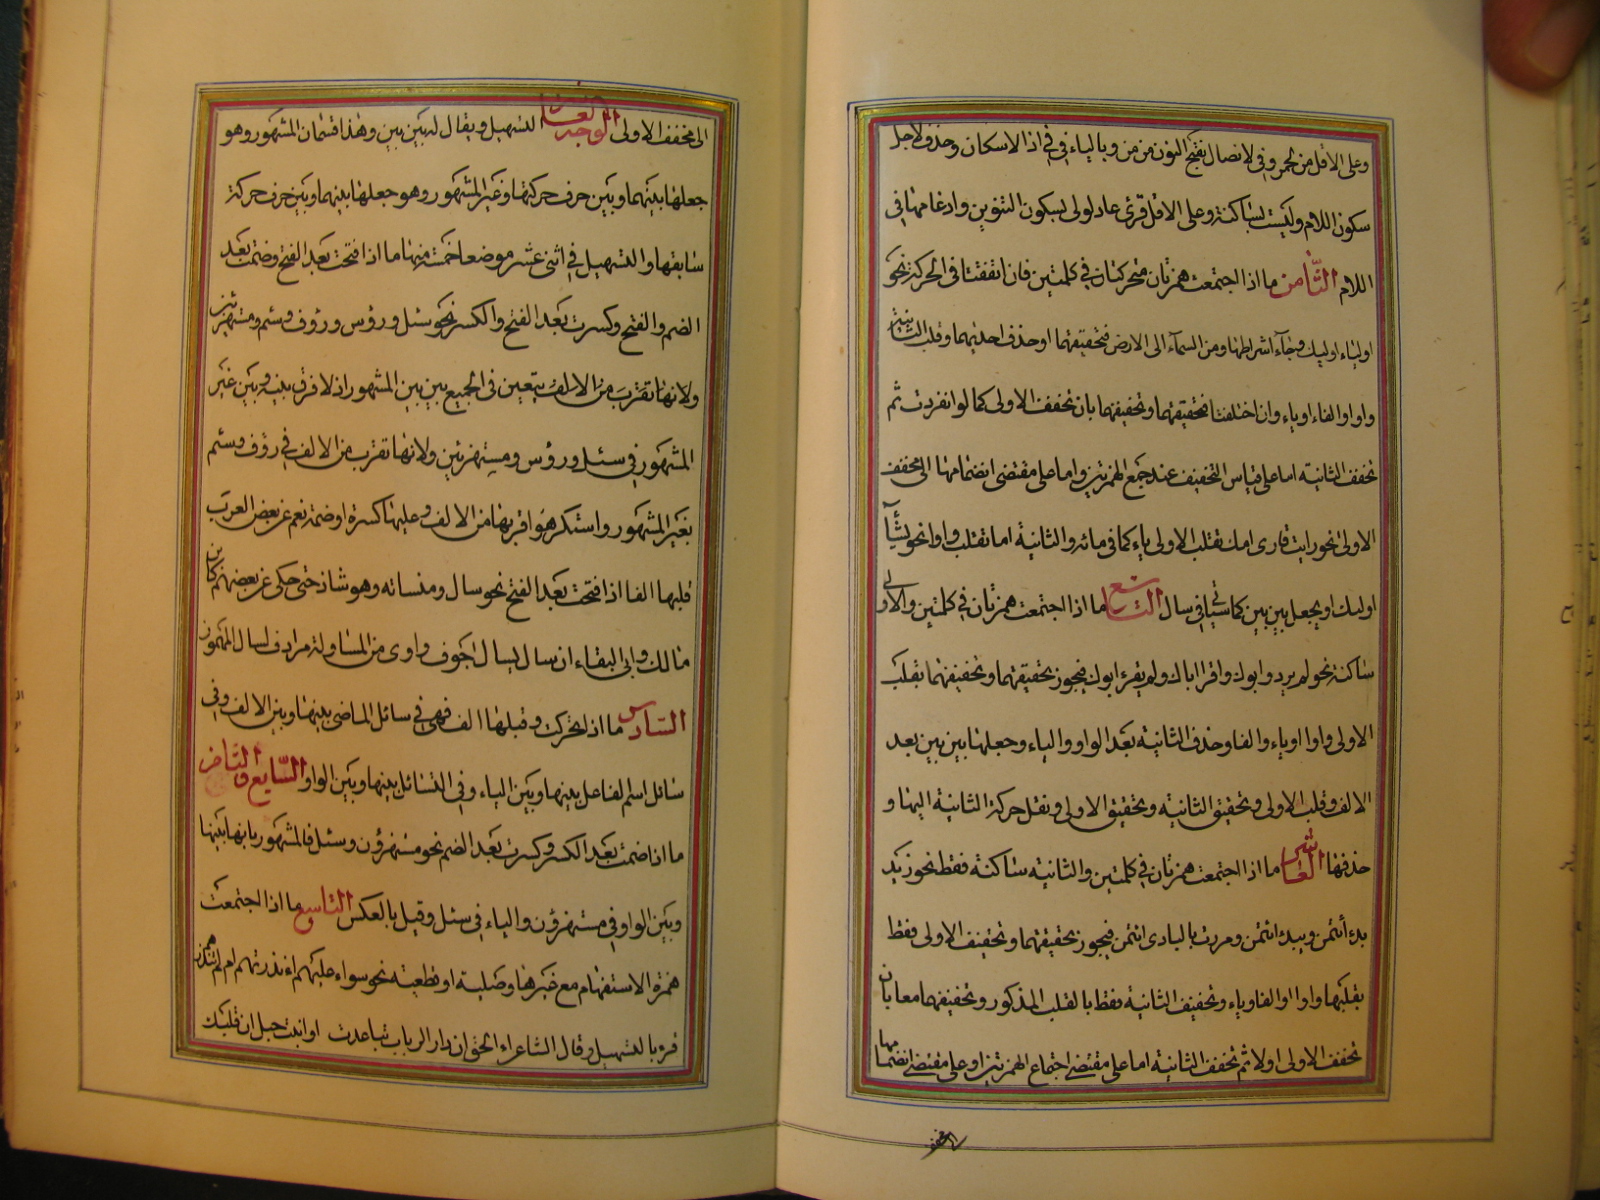 وعلى الاقل من لحمر وفي لانصال بفتح النون من من وبالياء في في اذا الاسكان وحذف لاجل
سكون اللام وليست بساكنة وعلى الاقل قرئ عاد لولى بسكون التنوين وادغامها في
اللام الثامن ما اذا اجتمعت همزتان متحركتان في كلمتين فان اتفقتا في الحركة نحو
اولياء اوليك وجاء اشراطها ومن السماء الى الارض فتحقيقهما او حذف احديهما وقلب الثانية
واوا والفاء اوياء وان اختلفتا فتحقيقهما وتخفيفهما بان تخفف الاولى كما لو انفردت ثم
تخفف الثانية اما على قياس التخفيف عند جمع الهمزتين واما على مقتضى انضمامها الى مخفف
الاولى نحو رايت قارى امك بقلب الاولى ياء كما في مائة والثانية اما بقلب واوا نحو يشآ
اوليك او يجعل بين بين كما سياتي في سال التاسع ما اذا اجتمعت همزتان في كلمتين والاولى
ساكنة نحو لم يردو ابوك واقرا اباك ولم يقرء ابوك فيجوز تحقيقهما وتخفيفهما بقلب
الاولى واوا اوياء والفا وحذف الثانية بعد الواو والياء وجعلها بين بين بعد
الالف وقلب الاولى وتحقيق الثانية وتحقيق الاولى ونقل حركة الثانية اليها و
حذفها العاشر ما اذا اجتمعت همزتان في كلمتين والثانية ساكنة فقط نحو زيد
بدء أئتمن ويبدء ائتمن ومررت بالبادى ائتمن فيجوز تحقيقهما وتخفيف الاولى فقط
بقلبها واوا او الفا وياء وتخفيف الثانية فقط بالقلب المذكور وتخفيفهما معا بان
تخفف الاولى اولا ثم تخفف الثانية اما على مقتضى اجتماع الهمزتين او على مقتضى انضمامها
الى مخفف الاولى التسهيل ويقال له بين بين وهذا قسمان المشهور وهو
جعلها بينهما وبين حرف حركتها وغير المشهور وهو جعلها بينهما وبين حرف حركة
سابقها والتسهيل في اثنى عشر موضعا خمسة منها ما اذا فتحت بعد الفتح وضمت بعد
الضم والفتح وكسرت بعد الفتح والكسر نحو سئل ورؤس ورؤف وسئم ومستهزئين
ولانها تقرب من الالف يتعين في الجميع بين بين المشهور اذ لا فرق بينه وبين غير
المشهور في سئل ورؤس ومستهزئين ولانها تقرب من الالف في رؤف وسئم
بغير المشهور واستكرهوا قربها من الالف وعليها كسرة او ضمة نعم عن بعض العرب
قلبها الفا اذا فتحت بعد الفتح نحو سال ومنساته وهو شاذ حتى حكى عن بعضهم كابن
مالك وابى البقاء ان سال يسال اجوف واوى من المساولة مرادف لسال المهموز
السادس ما اذا تحركت وقبلها الف فهى في سائل الماضى بينها وبين الالف وفى
سائل اسم لفاعل بينها وبين الياء وفى التسائل بينها وبين الواو السابع والثامن
ما اذا ضمت بعد الكسر وكسرت بعد الضم نحو مستهزؤن وسئل فالمشهور بابها بينها
وبين الواو في مستهزؤن والياء في سئل وقيل بالعكس التاسع ما اذا اجتمعت
همزة الاستفهام مع غيرها وصلية او قطعية نحو سواء عليهم اءنذرتهم ام لم تنذرهم
قرئ بالتسهيل وقال الشاعر اء الحق ان دار الرباب تباعدت او انبت حبل ان قلبك
مخفف